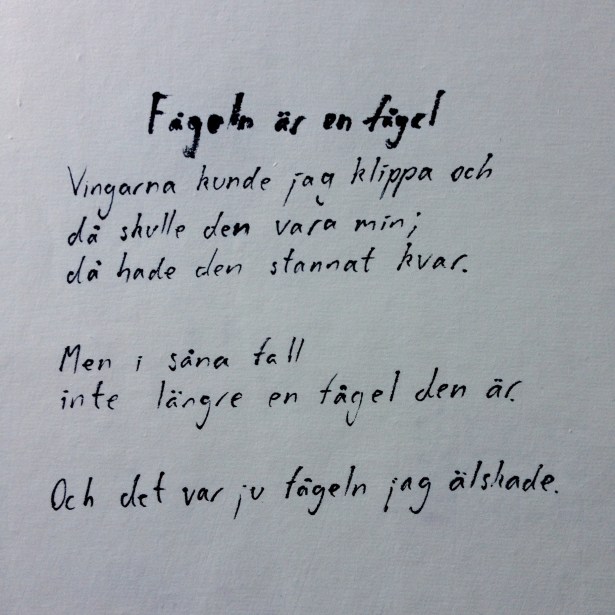 Fågeln är en fågel
Vingarna kunde jag klippa och
då skulle den vara min;
då hade den stannat kvar.
Men i såna fall
inte längre en fågel den är.
Och det var ju fågeln jag älskade.